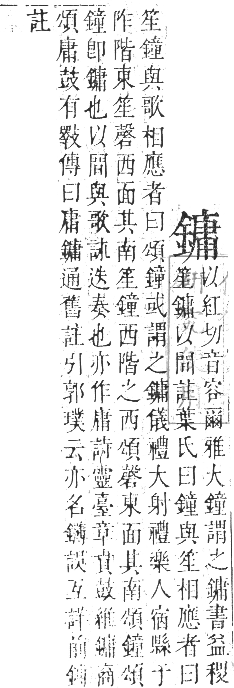 鏞以紅切音容爾雅大鐘謂之鏞書益稷
笙鏞以間註葉氏曰鐘與笙相應者曰
笙鐘與歌相應者曰頌鐘或謂之鏞儀禮大射禮樂人宿縣于
阼階東笙磬西面其南笙鐘西階之西頌磬東面其南頌鐘頌
鐘卽鏞也以間與歌詠迭奏也亦作庸詩靈臺章賁鼓維鏞商
頌庸鼓有斁傳曰庸鏞通舊註引郭璞云亦名鑮誤互詳前鑮
註